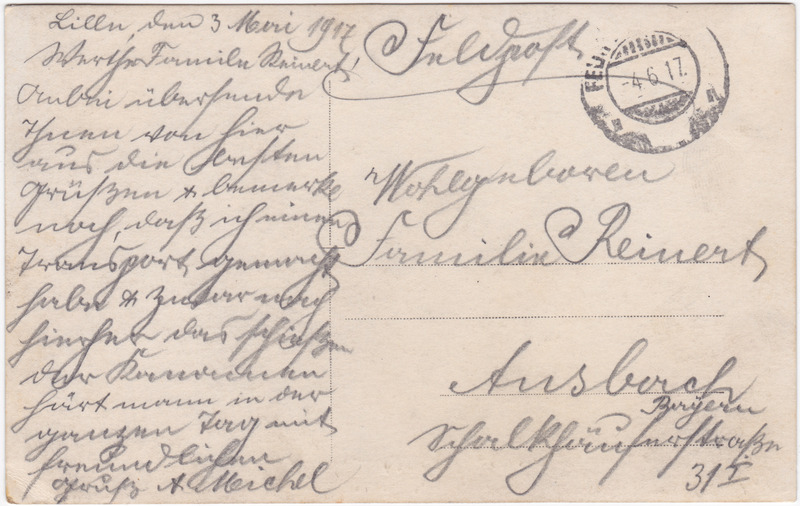 Lille, den 3 Mai 1917
Werthe Familie Reinert!
Anbei übersende
Ihnen von hier
aus die besten
Grüßen & bemerke
noch, daß ich einen
Transport gemacht
habe & zwar nach
hierher das schießen
der Kanonnen
hört mann in der
ganzen Tag mit
freundlichen
Gruß A Meichel
Feldpost
-4.6.17.
Wohlgeboren
Familie Reinert
Ansbach
Bayern
Schalkhäuserstraße
31 I.